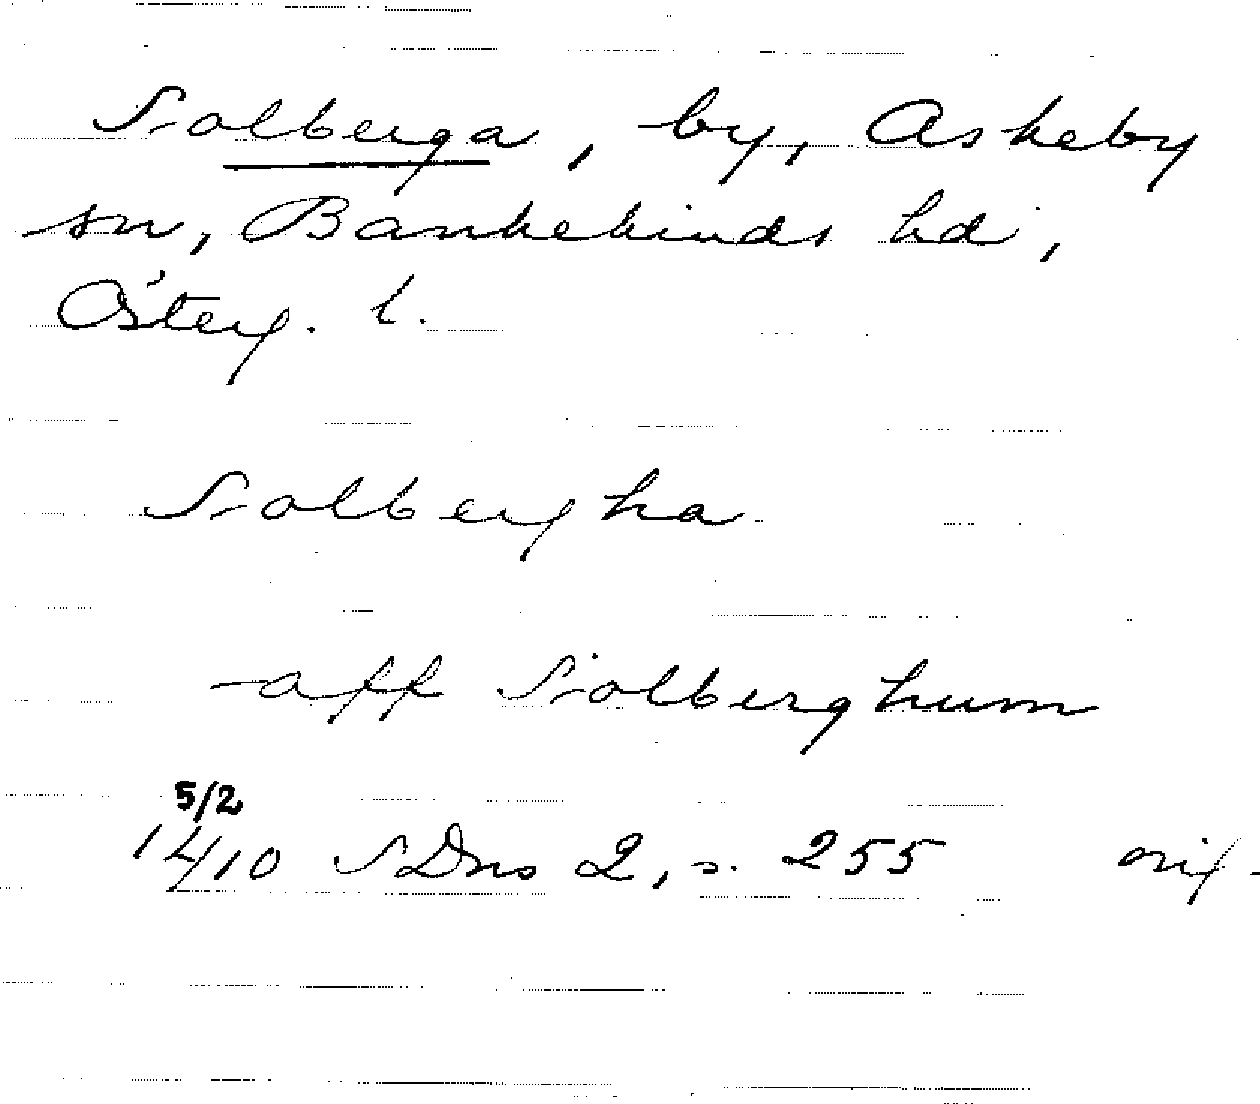 Solberga, by, Askeby
sn, Bankekinds hd,
Österg. l.
Solbergha
aff Solberghum
5/2
1410 SDns 2, s. 255 orig.